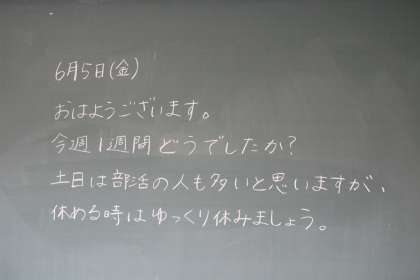 6月5日(金)
おはようございます。
今週1週間どうでしたか?
土日は部活の人も多いと思いますが、
休める時はゆっくり休みましょう。